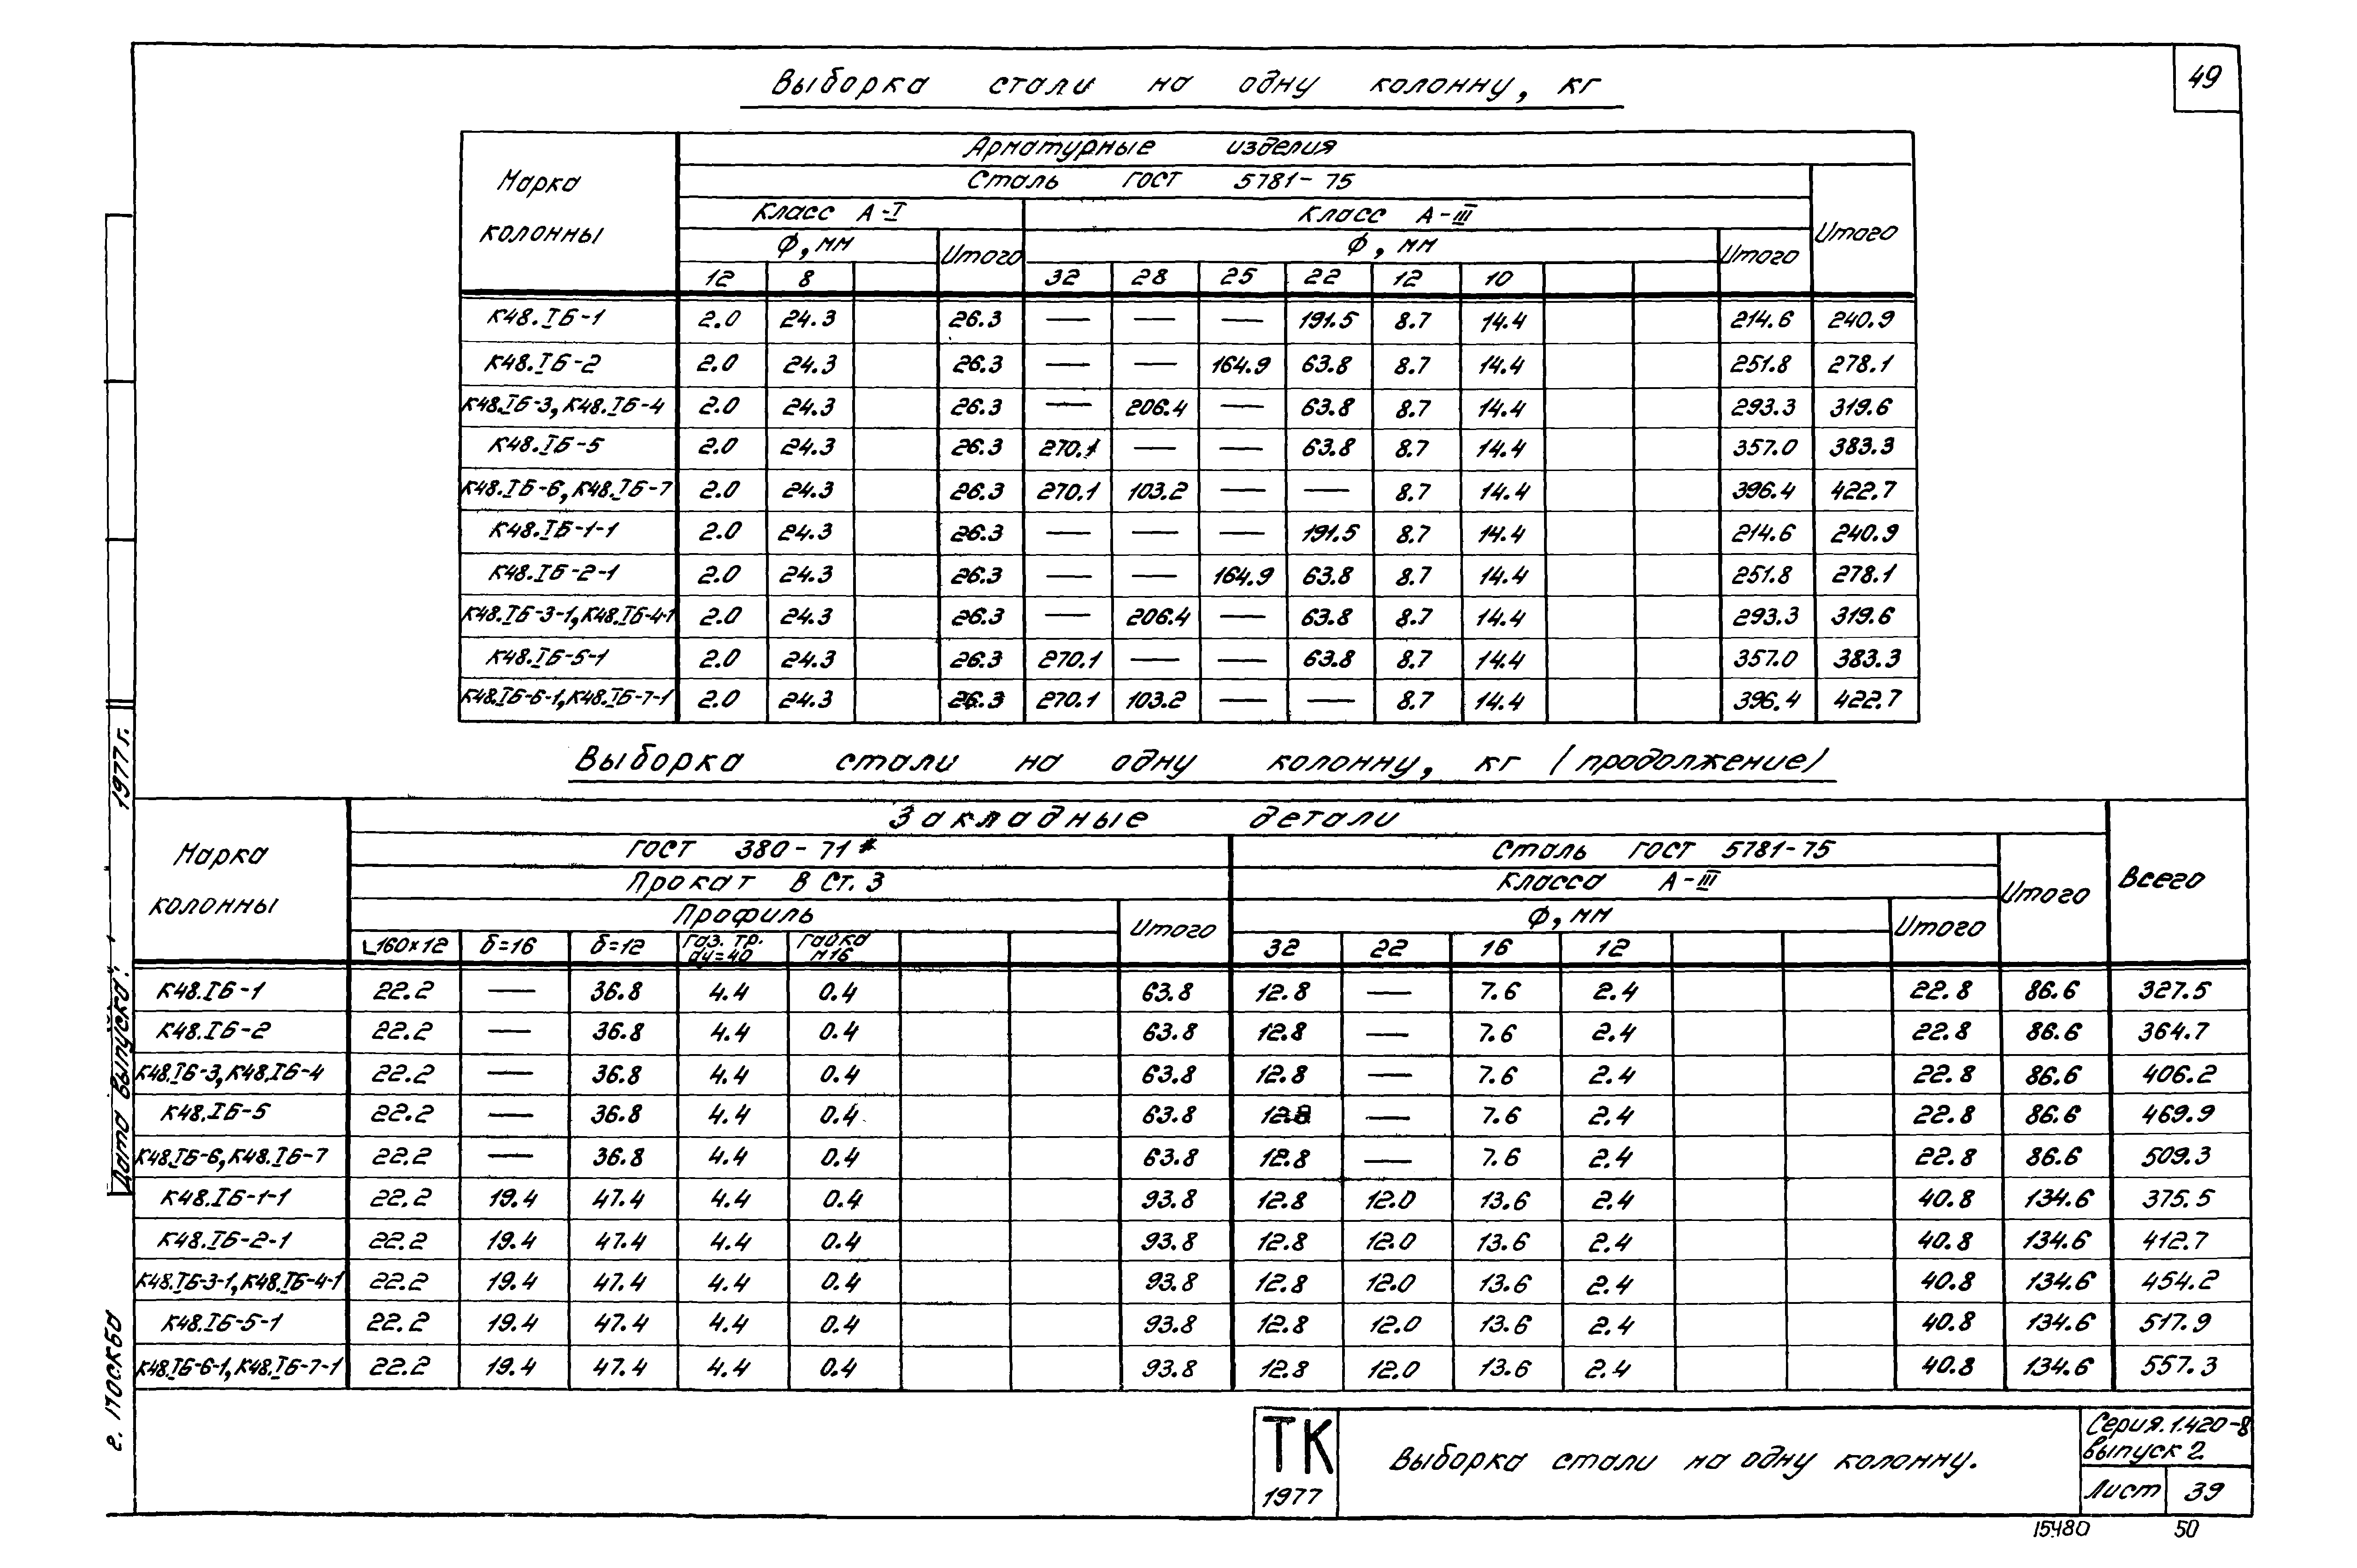 49
Выборка стали на одну колонну, кг
Марка колонны
Арматурные изделия
Сталь ГОСТ 5781-75
Итого
Класс А-I
Класс А-III
Ф, мм
Итого
Ф, мм
Итого
12 8 32 28 25 22 12 10
К48.IБ-1 2.0 24.3 26.3 — — — 191.5 8.7 14.4 214.6 240.9
К48.IБ-2 2.0 24.3 26.3 — — 164.9 63.8 8.7 14.4 251.8 278.1
К48.IБ-3, К48.IБ-4 2.0 24.3 26.3 — 206.4 — 63.8 8.7 14.4 293.3 319.6
К48.IБ-5 2.0 24.3 26.3 270.1 — — 63.8 8.7 14.4 357.0 383.3
К48.IБ-6, К48.IБ-7 2.0 24.3 26.3 270.1 103.2 — — 8.7 14.4 396.4 422.7
К48.IБ-1-1 2.0 24.3 26.3 — — — 191.5 8.7 14.4 214.6 240.9
К48.IБ-2-1 2.0 24.3 26.3 — — 164.9 63.8 8.7 14.4 251.8 278.1
К48.IБ-3-1, К48.IБ-4-1 2.0 24.3 26.3 — 206.4 — 63.8 8.7 14.4 293.3 319.6
К48.IБ-5-1 2.0 24.3 26.3 270.1 — — 63.8 8.7 14.4 357.0 383.3
К48.IБ-6-1, К48.IБ-7-1 2.0 24.3 26.3 270.1 103.2 — — 8.7 14.4 396.4 422.7
Выборка стали на одну колонну, кг (продолжение)
Марка колонны
Закладные детали
Всего
ГОСТ 380-71*
Сталь ГОСТ 5781-75
Итого
Прокат В Ст. 3
Класса А-III
Профиль
Итого
Ф, мм
Итого
∟160×12 δ=16 δ=12 Газ. тр. dу=40 Гайка М16 32 22 16 12
К48.IБ-1 22.2 — 36.8 4.4 0.4 63.8 12.8 — 7.6 2.4 22.8 86.6 327.5
К48.IБ-2 22.2 — 36.8 4.4 0.4 63.8 12.8 — 7.6 2.4 22.8 86.6 364.7
К48.IБ-3, К48.IБ-4 22.2 — 36.8 4.4 0.4 63.8 12.8 — 7.6 2.4 22.8 86.6 406.2
К48.IБ-5 22.2 — 36.8 4.4 0.4 63.8 12.8 — 7.6 2.4 22.8 86.6 469.9
К48.IБ-6, К48.IБ-7 22.2 — 36.8 4.4 0.4 63.8 12.8 — 7.6 2.4 22.8 86.6 509.3
К48.IБ-1-1 22.2 19.4 47.4 4.4 0.4 93.8 12.8 12.0 13.6 2.4 40.8 134.6 375.5
К48.IБ-2-1 22.2 19.4 47.4 4.4 0.4 93.8 12.8 12.0 13.6 2.4 40.8 134.6 412.7
К48.IБ-3-1, К48.IБ-4-1 22.2 19.4 47.4 4.4 0.4 93.8 12.8 12.0 13.6 2.4 40.8 134.6 454.2
К48.IБ-5-1 22.2 19.4 47.4 4.4 0.4 93.8 12.8 12.0 13.6 2.4 40.8 134.6 517.9
К48.IБ-6-1, К48.IБ-7-1 22.2 19.4 47.4 4.4 0.4 93.8 12.8 12.0 13.6 2.4 40.8 134.6 557.3
г. Москва
Дата выпуска: 1977 г.
ТК
1977
Выборка стали на одну колонну.
Серия. 1.420-8
выпуск 2
Лист 39
15480 50